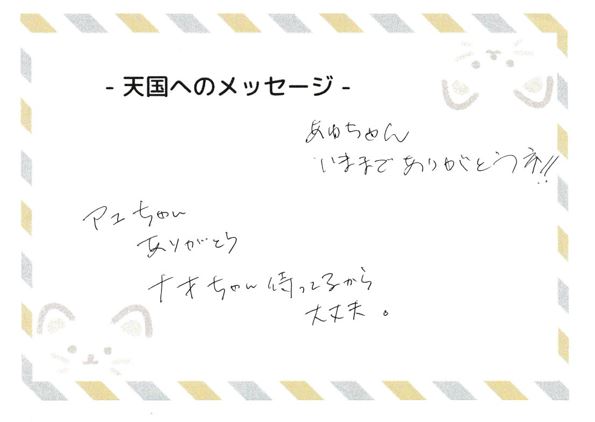 - 天国へのメッセージ -
あゆちゃん
いままでありがとうネ!!
アユちゃん
ありがとう
ナオちゃん待ってるから
大丈夫。